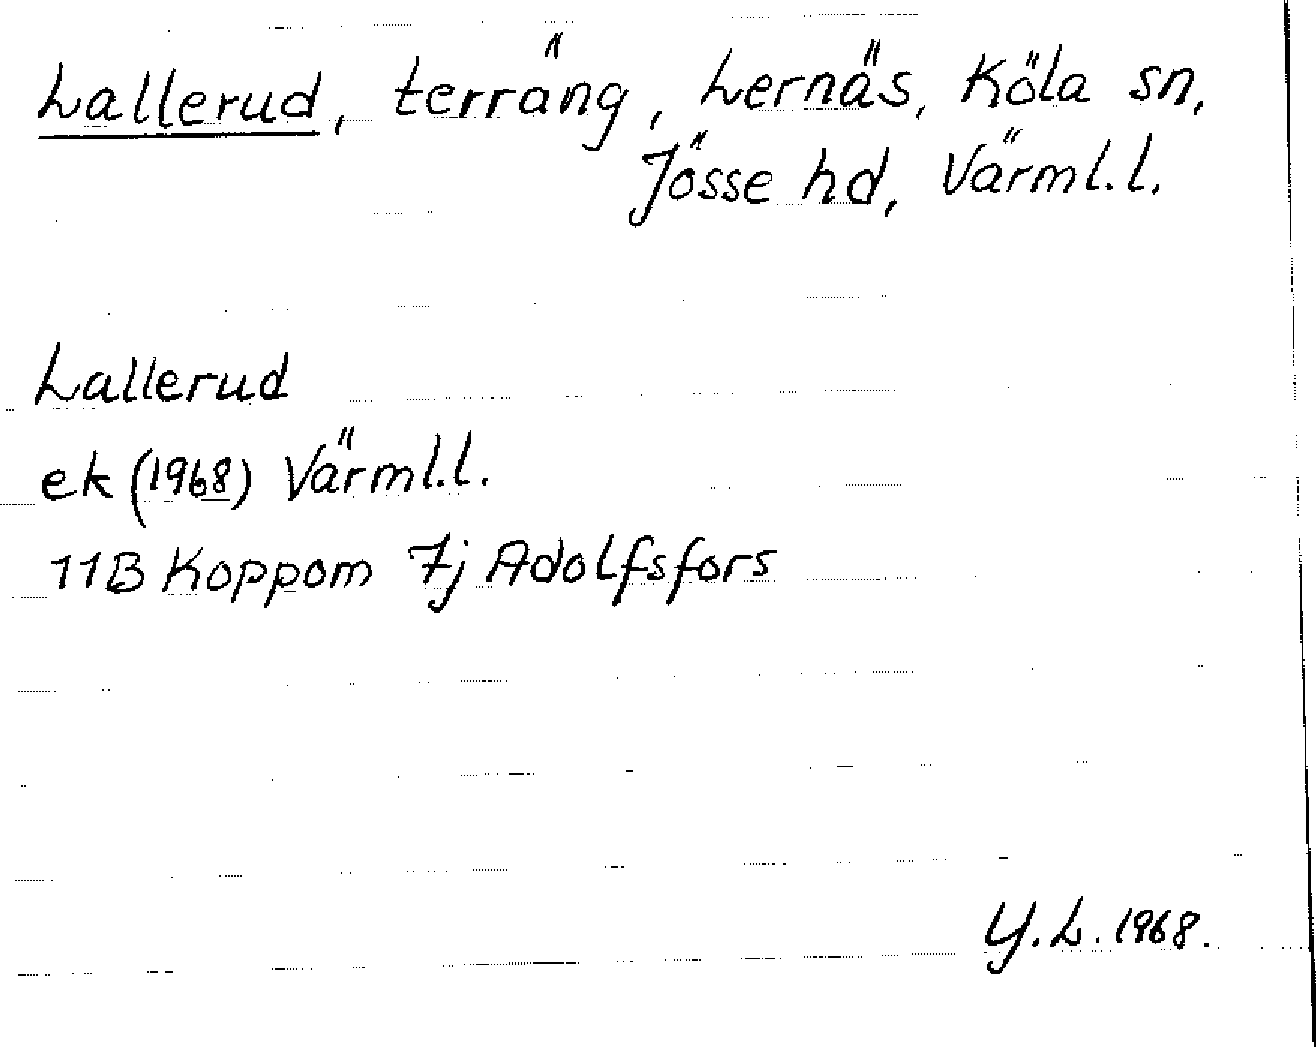 Lallerud, terräng, Lernäs, Köla sn,
Jösse hd, Värml.l.
Lallerud
ek (1968) Värml.l.
11B Koppom 7j Adolfsfors
Y.L. 1968.